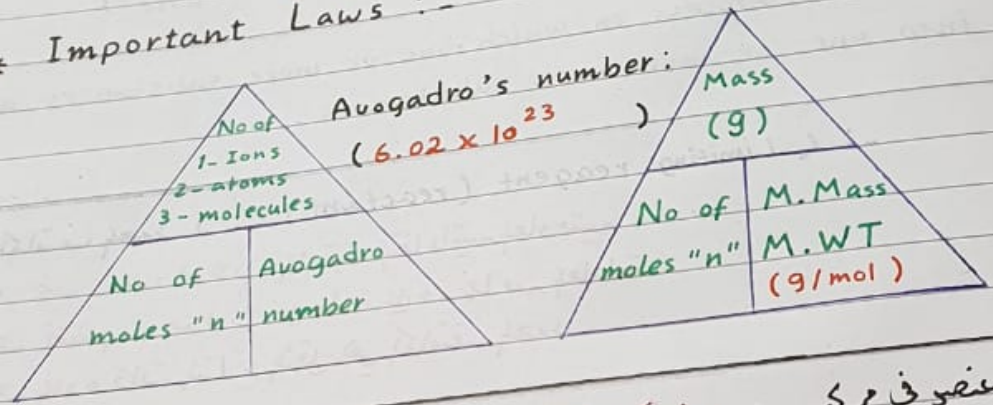 * Important Laws :-
Avogadro's number:
(6.02 x 10^23 )
No of
1- Ions
2- atoms
3- molecules
No of
moles "n"
Avogadro
number
Mass
(g)
No of
moles "n"
M.Mass
M.WT
(g/mol)